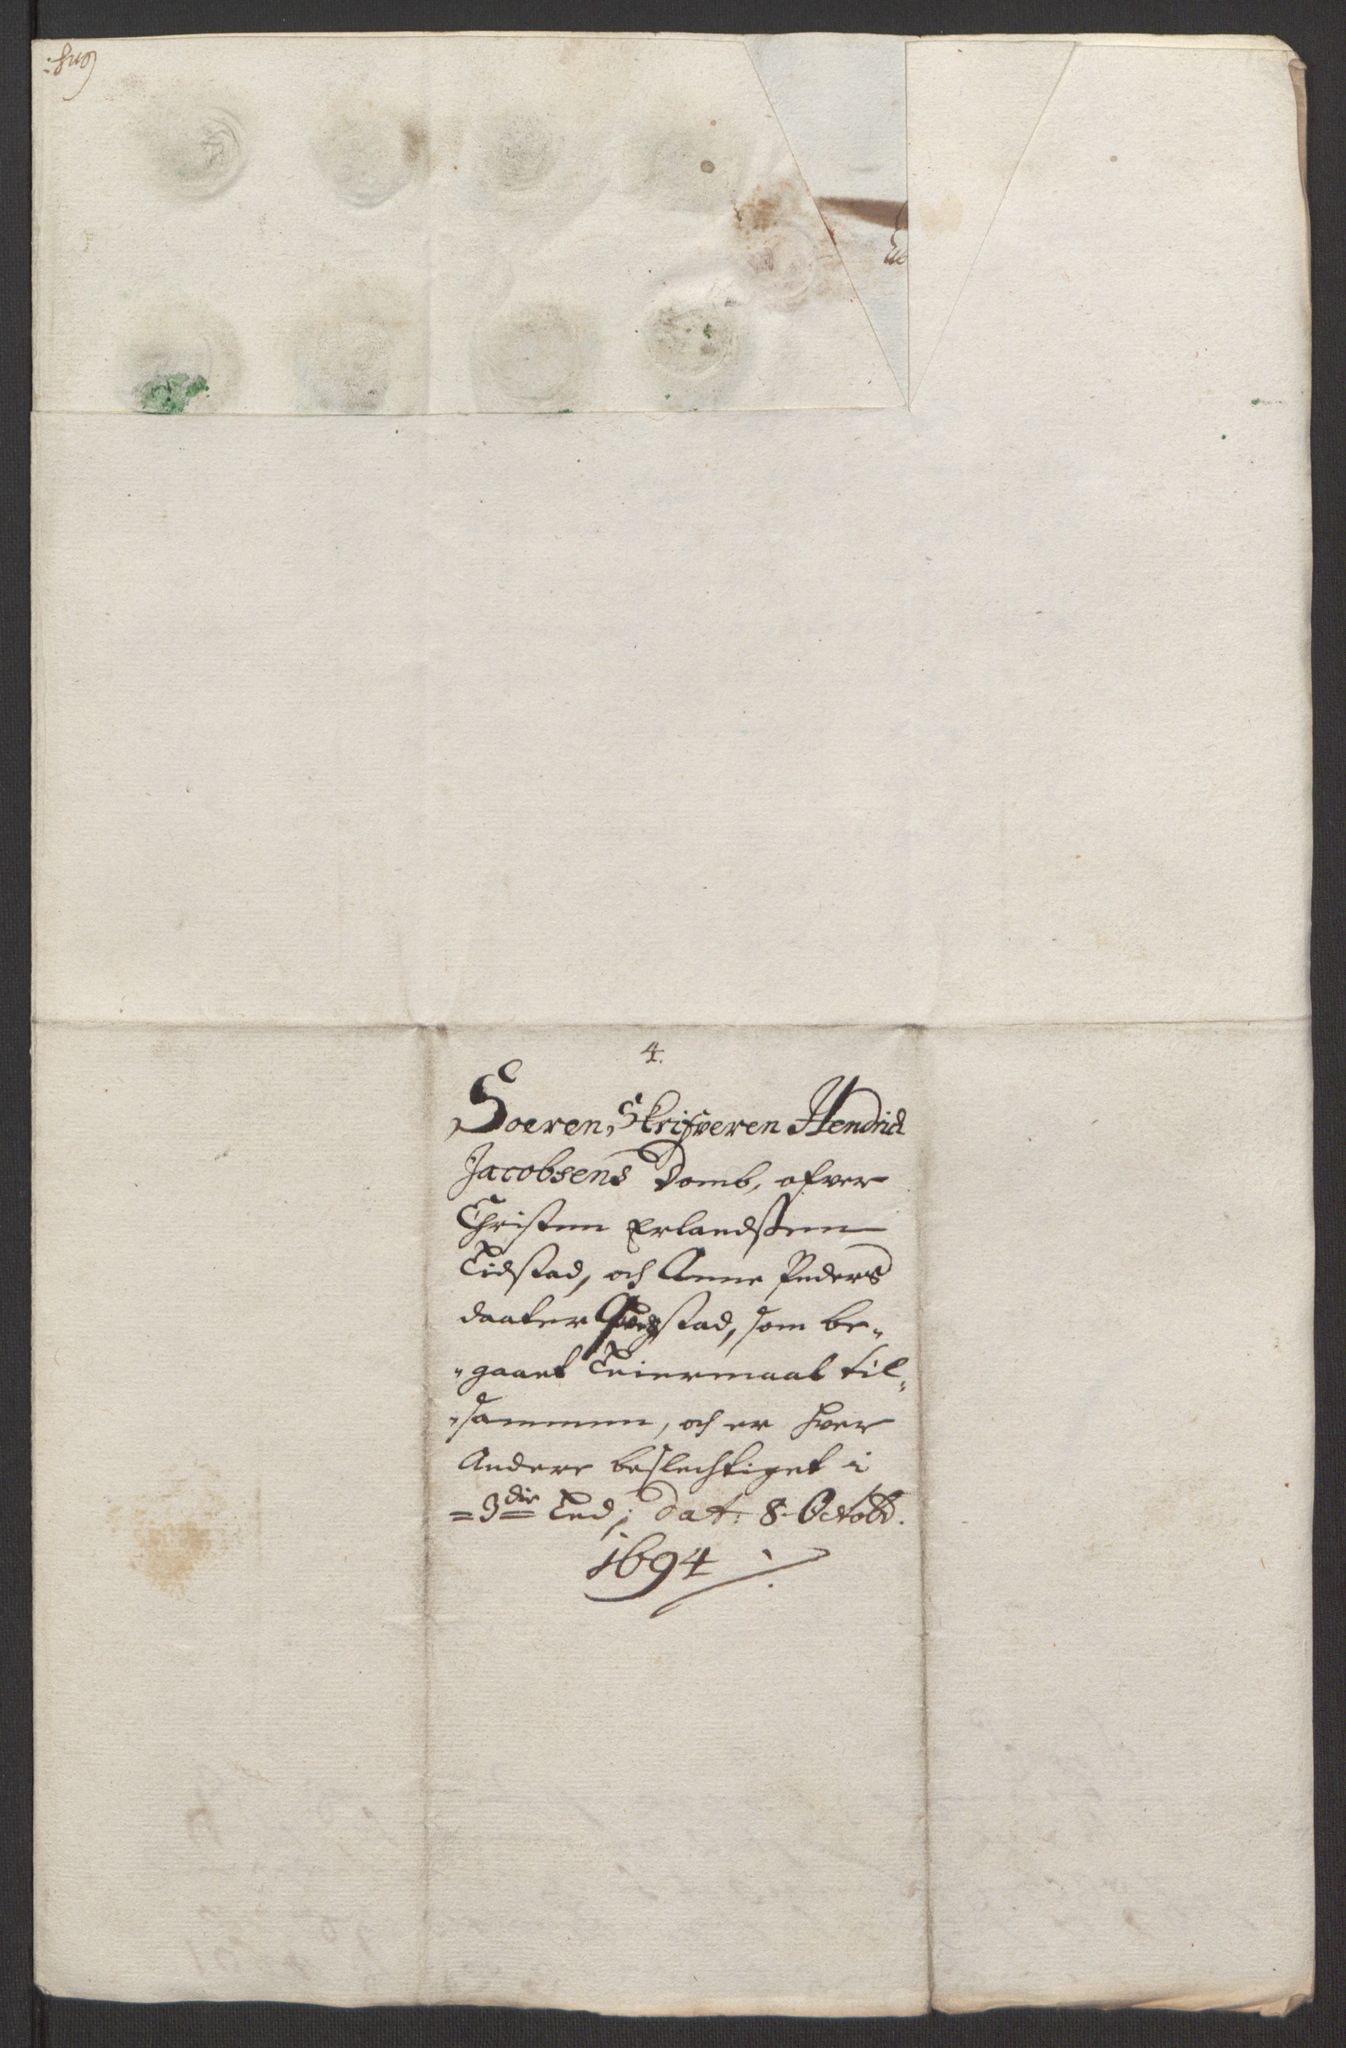 4.
Soeren, Skrifveren Hendrich
Jacobsens Domb, ofver
Christen Erlandssen
Tidstad, och Anne Peders
daater stad, som be„
„gaaet Leiermaal til„
„sammen, och er hver
Andere beslechtiget i
=3die Led; Dat: 8. Octobr.
1694